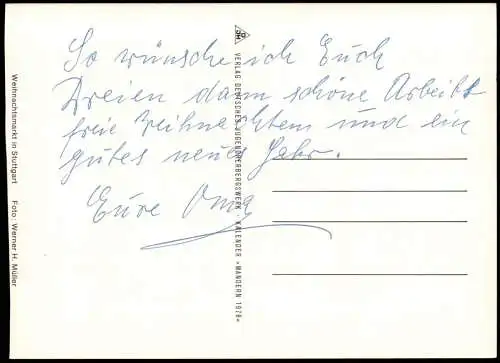 So wünsche ich Euch
Dreien dann schöne Arbeits
freie Weihnachten und ein
gutes neues Jahr.
Eure Oma
Weihnachtsmarkt in Stuttgart Foto: Werner H. Müller
VERLAG DEUTSCHES JUGENDHERBERGSWERK · KALENDER »WANDERN 1978«